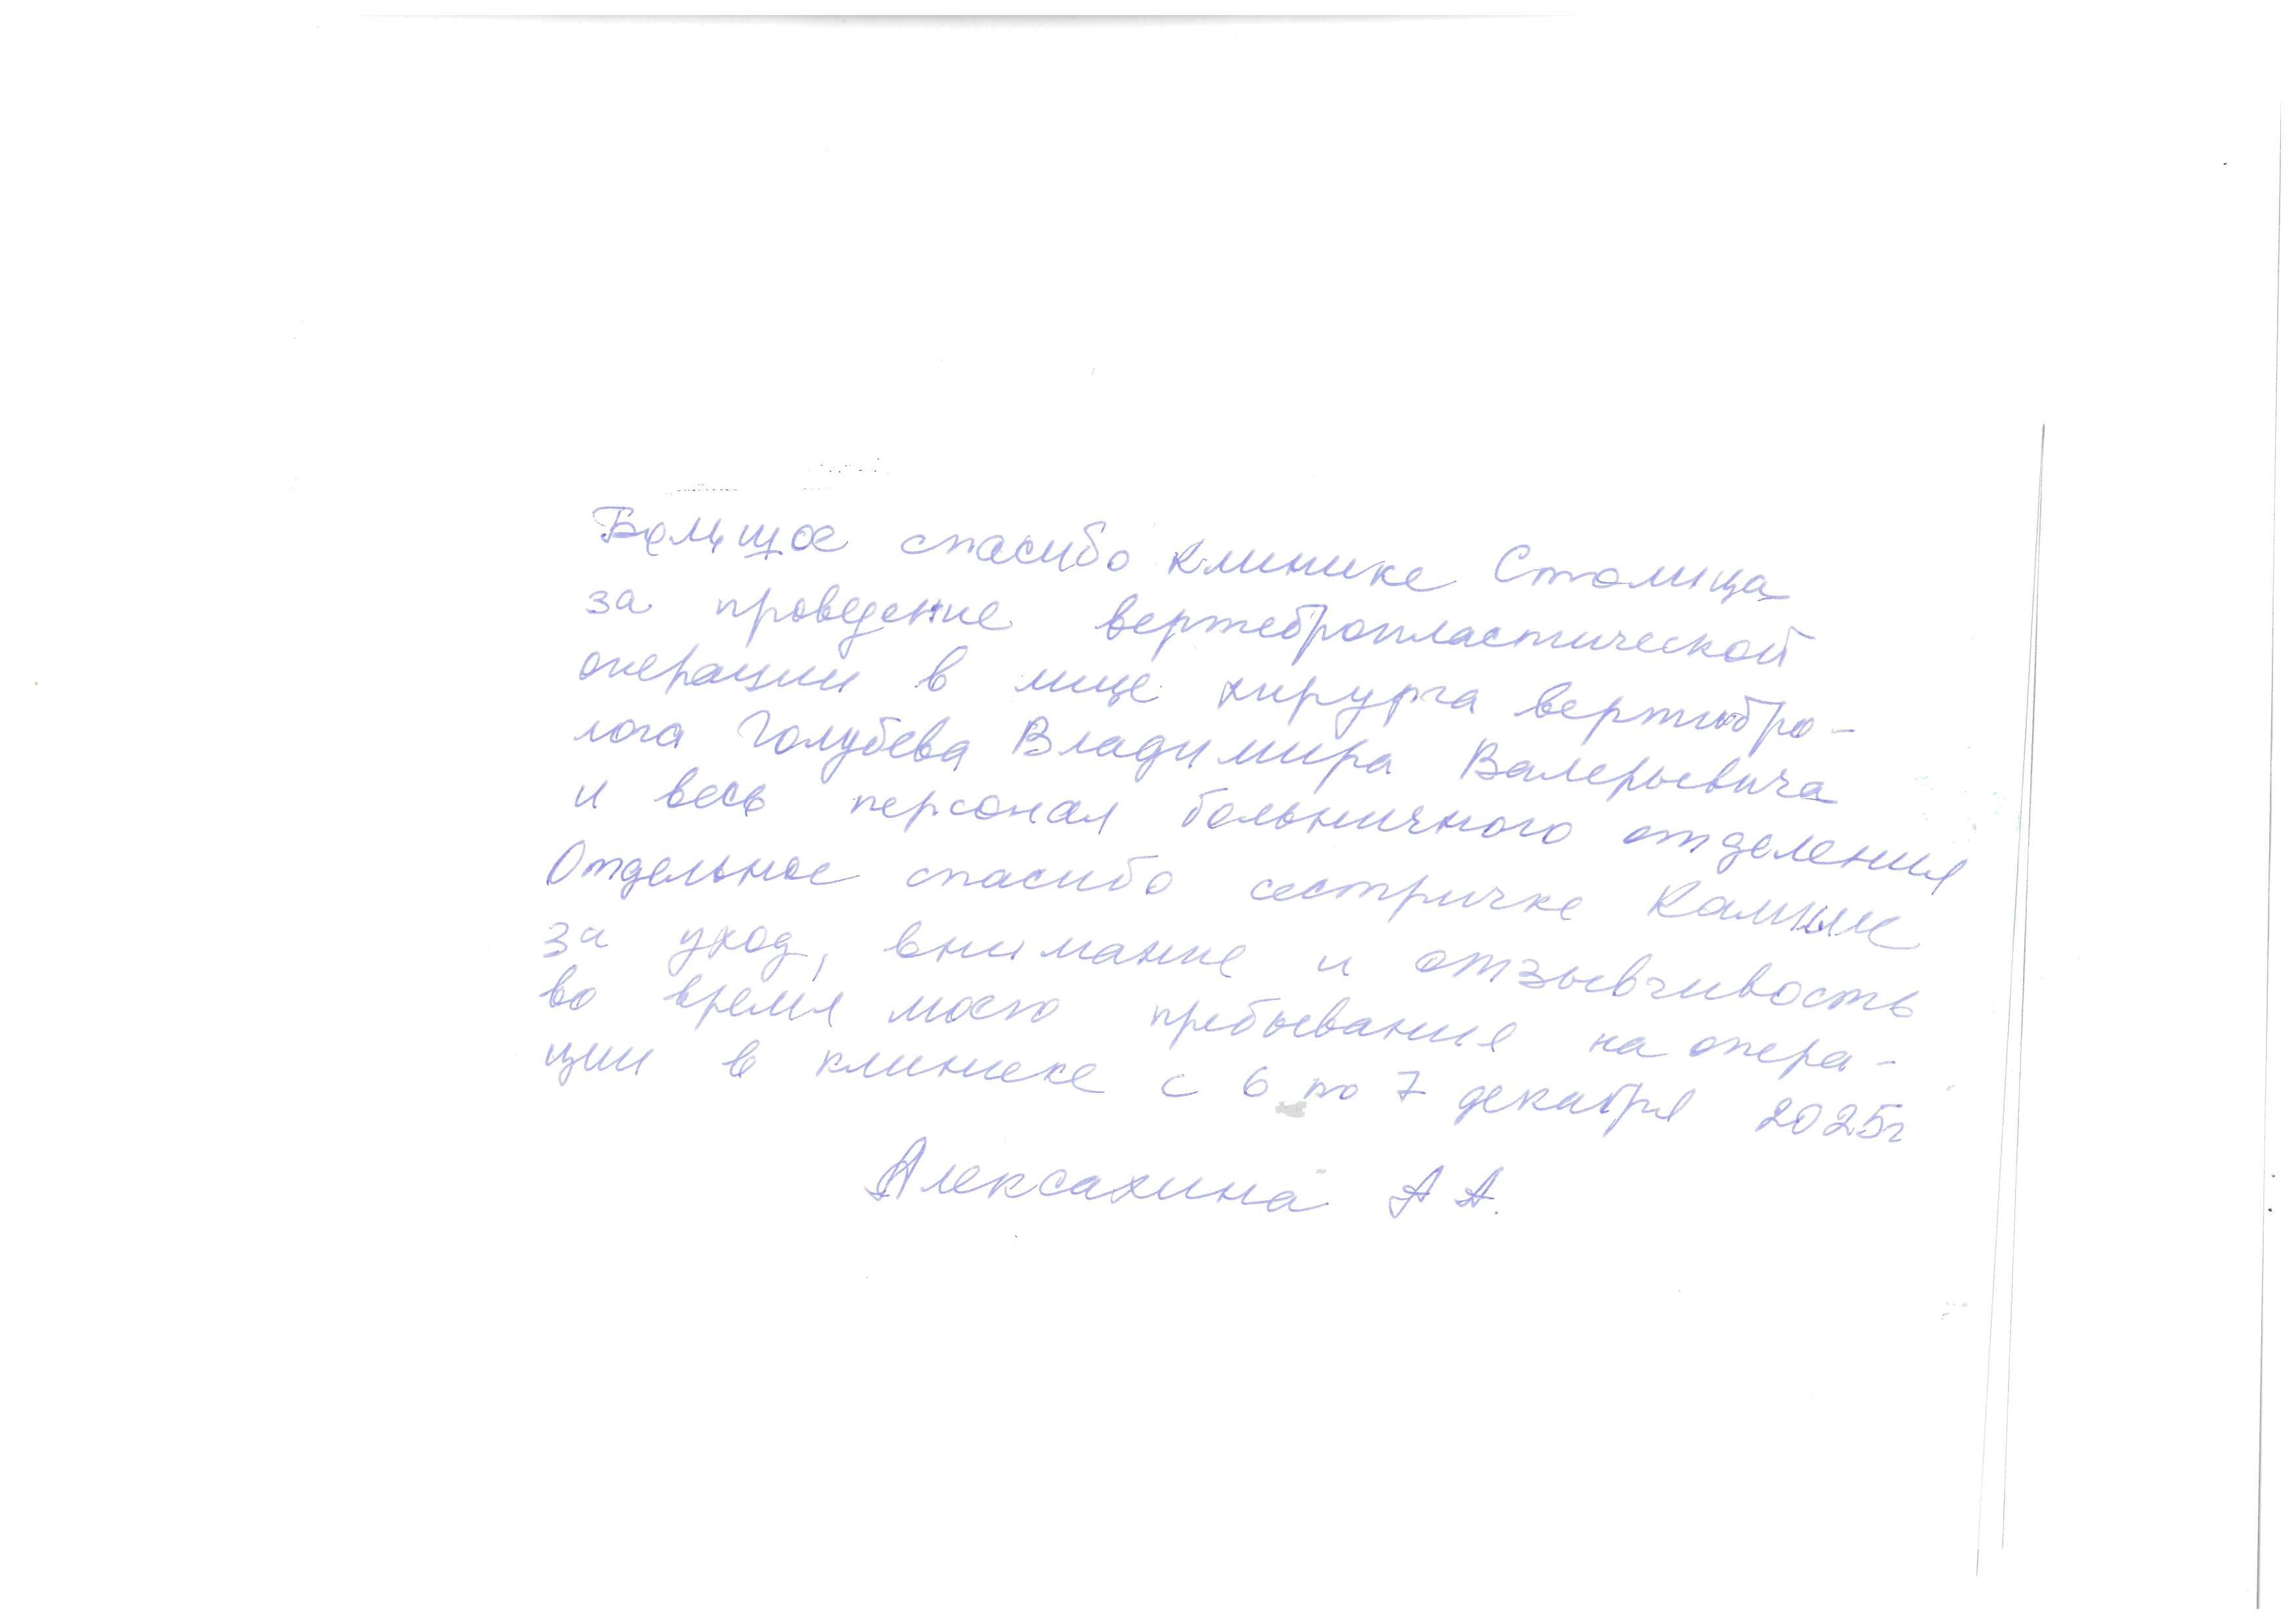 Большое спасибо клинике Столица
за проведение вертебропластической
операции в лице хирурга вертибро-
лога Голубева Владимира Валерьевича
и весь персонал больничного отделения
Отдельное спасибо сестричке Камиле
за уход, внимание и отзывчивость
во время моего пребывания на опера-
ции в клинике с 6 по 7 декабря 2025г
Алексахина А А.